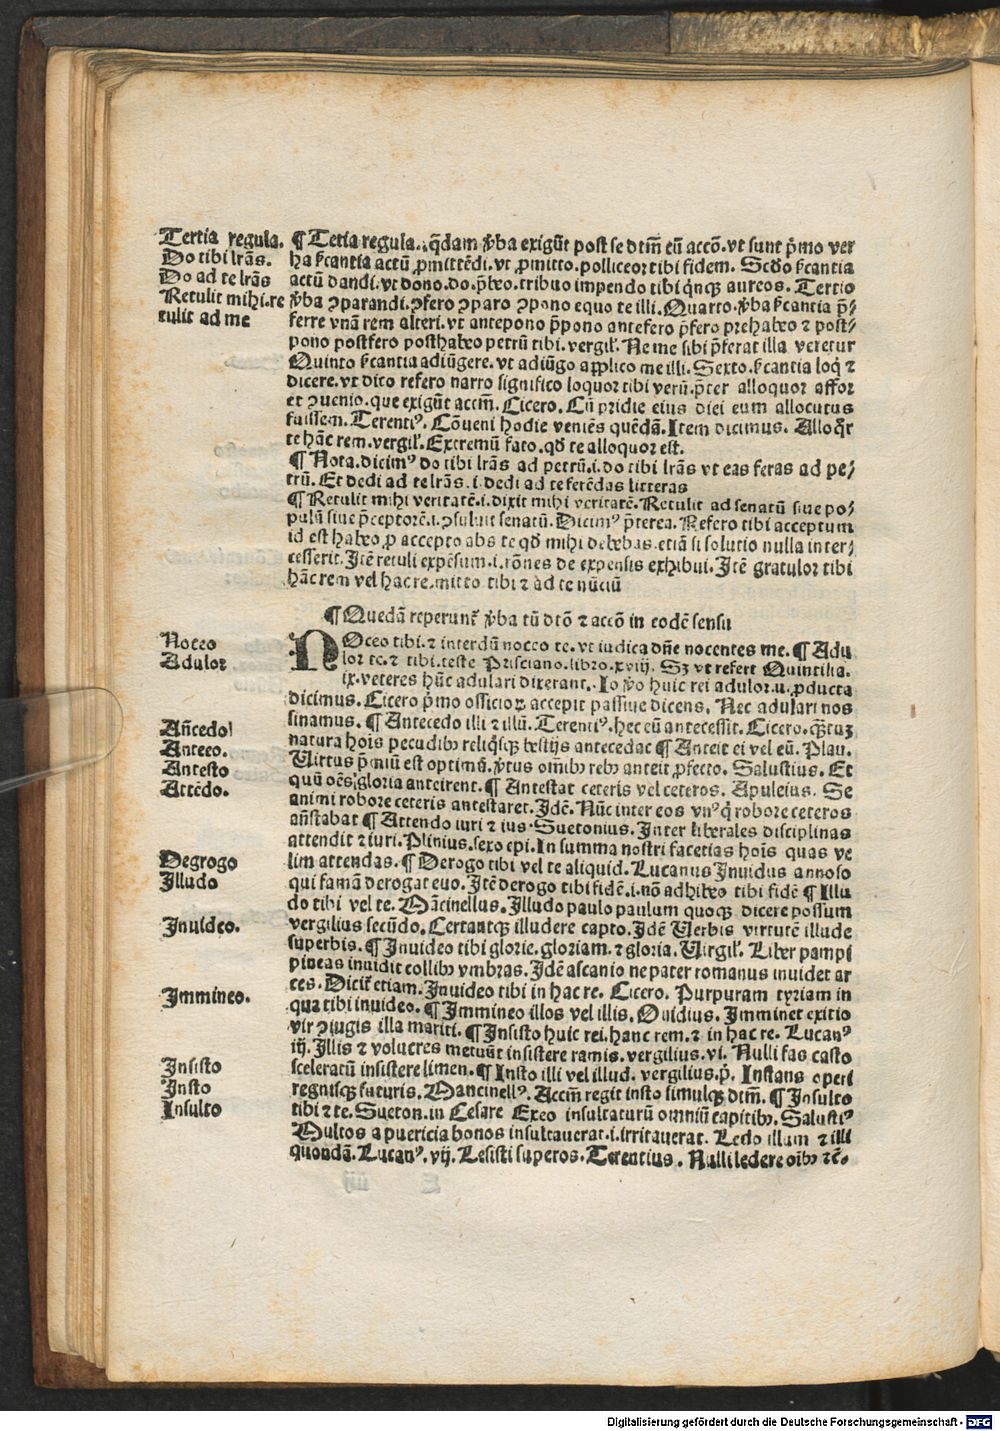 Tertia regula.
Do tibi lr̃as.
Do ad te lr̃as
Retulit mihi.re
tulit ad me
¶ Tertia regula. q̃dam v̓ba exigũt post se dtm̃ cũ accõ. vt sunt p̃mo ver
ba s̓cantia actũ ꝓmittẽdi. vt ꝓmitto. polliceor tibi fidem. Scd̓o s̓cantia
actũ dandi. vt dono. do. p̃beo. tribuo impendo tibi q̃nqꝫ aureos. Tertio
v̓ba ꝯparandi. ꝯfero ꝯparo ꝯpono equo te illi. Quarto. v̓ba s̓cantia p̃/
ferre vnã rem alteri. vt antepono p̃pono antefero p̃fero prehabeo ⁊ post/
pono postfero posthabeo petrũ tibi. vergil̓. Ne me sibi p̃ferat illa veretur
Quinto s̓cantia adiũgere. vt adiũgo applico me illi. Sexto. s̓cantia loq̃ ⁊
dicere. vt dico refero narro significo loquor tibi verũ. p̃ter alloquor affor
et ꝯuenio. que exigũt accm̃. Cicero. Cũ pridie eius diei eum allocutus
fuissem. Terentiꝰ. Cõueni hodie veniẽs quẽdã. Item dicimus. Alloq̃r
te hãc rem. vergil̓. Extremũ fato. qd̓ te alloquor est.
¶ Nota. dicimꝰ do tibi lr̃as ad petrũ. i. do tibi lr̃as vt eas feras ad pe/
trũ. Et dedi ad te lr̃as. i. dedi ad te ferẽdas litteras
¶ Retulit mihi veritatẽ. i. dixit mihi veritatẽ. Retulit ad senatũ siue po/
pulũ siue p̃ceptorẽ. i. ꝯsuluit senatũ. Dicimꝰ p̃terea. Refero tibi acceptum
id est habeo ꝓ accepto abs te qd̓ mihi debebas. etiã si solutio nulla inter/
cesserit. Itẽ retuli expẽsum. i. rõnes de expensis exhibui. Itẽ gratulor tibi
hãc rem vel hac re. mitto tibi ⁊ ad te nũciũ
¶ Quedã reperunt̃ v̓ba cũ dtõ ⁊ accõ in eodẽ sensu
Noceo
Adulor
Añcedo
Anteeo.
Antesto
Attẽdo.
Degrogo
Illudo
Inuideo.
Immineo.
Insisto
Insto
Insulto
NOceo tibi. ⁊ interdũ noceo te. vt iudica dñe nocentes me. ¶ Adu
lor te. ⁊ tibi. teste Prisciano. libro. xviij. Sꝫ vt refert Quintilia.
ix. veteres hũc adulari dixerant. Io v̓o huic rei adulor. u. ꝓducta
dicimus. Cicero p̃mo officioꝝ. accepit passiue dicens. Nec adulari nos
sinamus. ¶ Antecedo illi ⁊ illũ. Terentiꝰ. hec eũ antecessit. Cicero. q̃tuꝫ
natura hoĩs pecudibꝫ reliq̃sqꝫ bestijs antecedat ¶ Anteit ei vel eũ. Plau.
Uirtus p̃miũ est optimũ. v̓tus om̃ibꝫ rebꝫ anteit ꝓfecto. Salustius. Et
quũ oẽs gloria anteirent. ¶ Antestat ceteris vel ceteros. Apuleius. Se
animi robore ceteris antestaret. Idẽ. Nũc inter eos vnꝰ q̃ robore ceteros
añstabat ¶ Attendo iuri ⁊ ius. Suetonius. Inter liberales disciplinas
attendit ⁊ iuri. Plinius. sexo epi. In summa nostri facetias hoĩs quas ve
lim attendas. ¶ Derogo tibi vel te aliquid. Lucanus Inuidus annoso
qui famã derogat euo. Itẽ derogo tibi fidẽ. i. nõ adhibeo tibi fidẽ ¶ Illu
do tibi vel te. Mãcinellus. Illudo paulo paulum quoqꝫ dicere possum
vergilius secũdo. Certantqꝫ illudere capto. Idẽ Uerbis virtutẽ illude
superbis. ¶ Inuideo tibi glorie. gloriam. ⁊ gloria. Uirgil̓. Liber pampi
pineas inuidit collibꝫ vmbras. Idẽ ascanio ne pater romanus inuidet ar
ces. Dicit̃ etiam. Inuideo tibi in hac re. Cicero. Purpuram tyriam in
qua tibi inuideo. ¶ Immineo illos vel illis. Ouidius. Imminet exitio
vir ꝯiugis illa mariti. ¶ Insisto huic rei. hanc rem. ⁊ in hac re. Lucanꝰ
iij. Illis ⁊ volucres metuũt insistere ramis. vergilius. vi. Nulli fas casto
sceleratũ insistere limen. ¶ Insto illi vel illud. vergilius. p̃. Instans operi
regnisqꝫ futuris. Mancinellꝰ. Accm̃ regit insto simulqꝫ dtm̃. ¶ Insulto
tibi ⁊ te. Sueton. in Cesare Exeo insultaturũ omniũ capitibꝫ. Salustiꝰ
Multos a puericia bonos insultauerat. i. irritauerat. Ledo illam ⁊ illi
quondã. Lucanꝰ. vij. Lesisti superos. Terentius. Nulli ledere oĩbꝫ ⁊c̃.
Digitalisierung gefördert durch die Deutsche Forschungsgemeinschaft - DFG